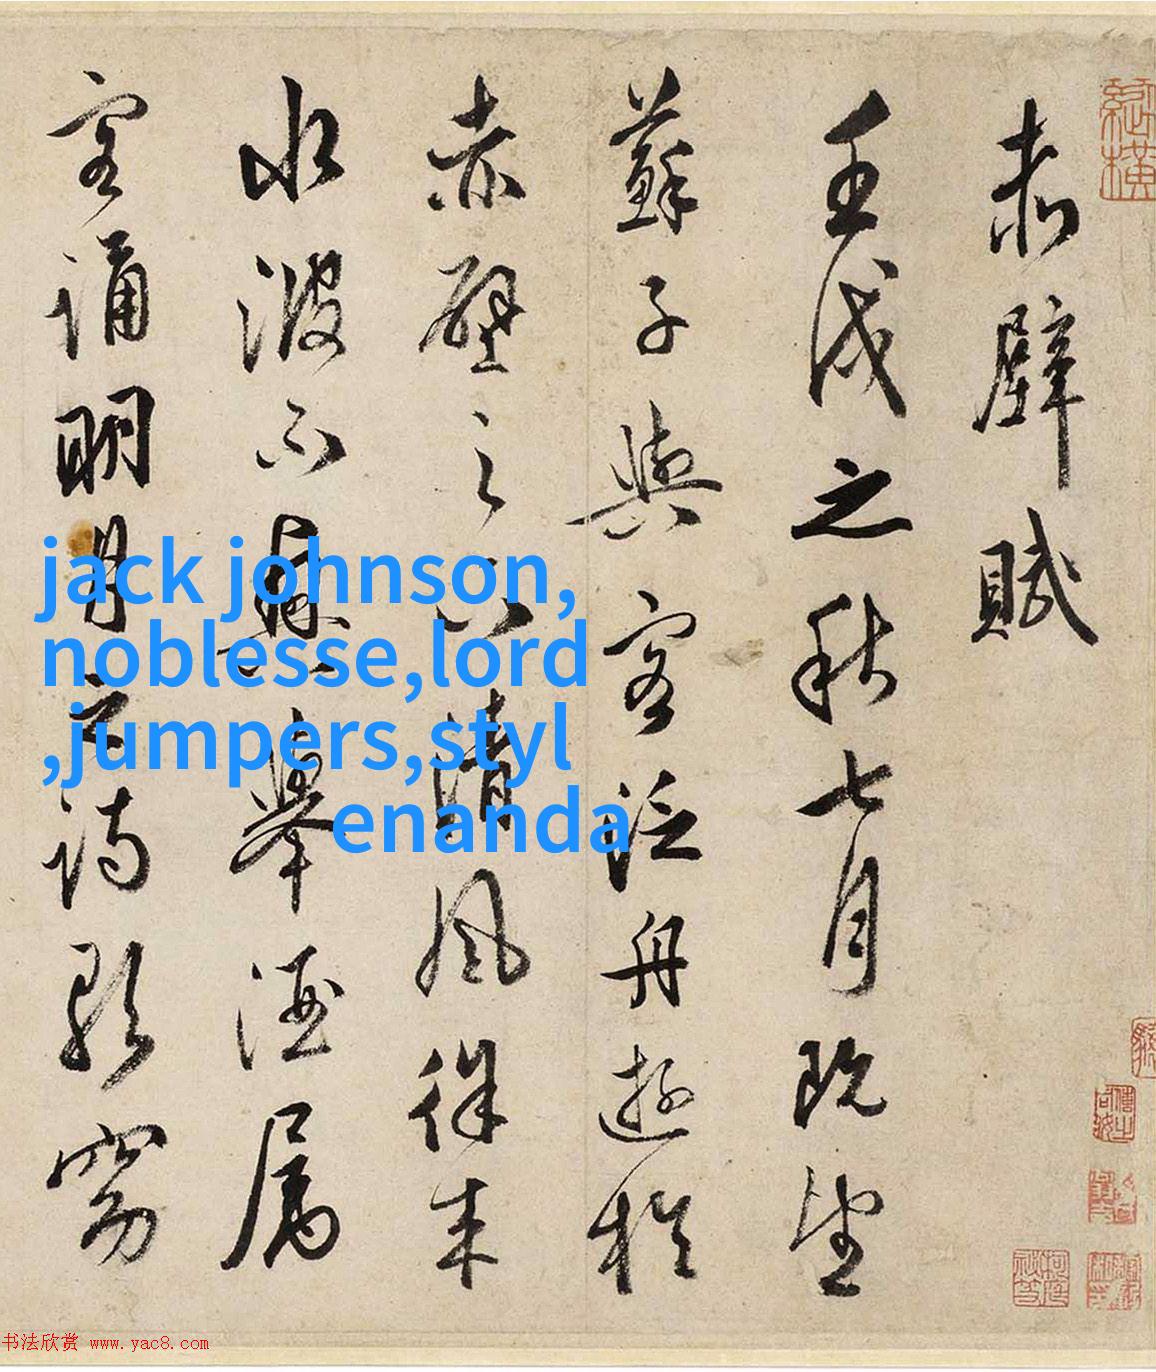 赤壁賦
壬戌之秋七月既望
蘇子與客泛舟遊於
赤壁之下清風徐来
水波不興舉酒属
客誦明月之詩歌窈
jack johnson,
noblesse,lord
,jumpers,styl
enanda
书法欣赏 www.yac8.com